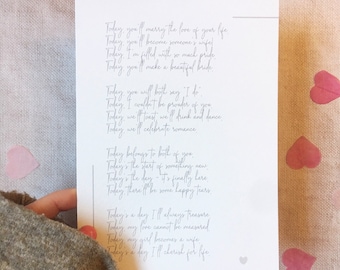 Today you'll marry the love of your life
Today you'll become someone's wife
Today I'm filled with so much pride
Today you'll make a beautiful bride
Today you will both say "I do"
Today I couldn't be prouder of you
Today we'll feast, we'll drink and dance
Today we'll celebrate romance
Today belongs to both of you
Today's the start of something new
Today's the day - it's finally here
Today there'll be some happy tears
Today's a day I'll always treasure
Today my love cannot be measured
Today my girl becomes a wife
Today's a day I'll cherish for life